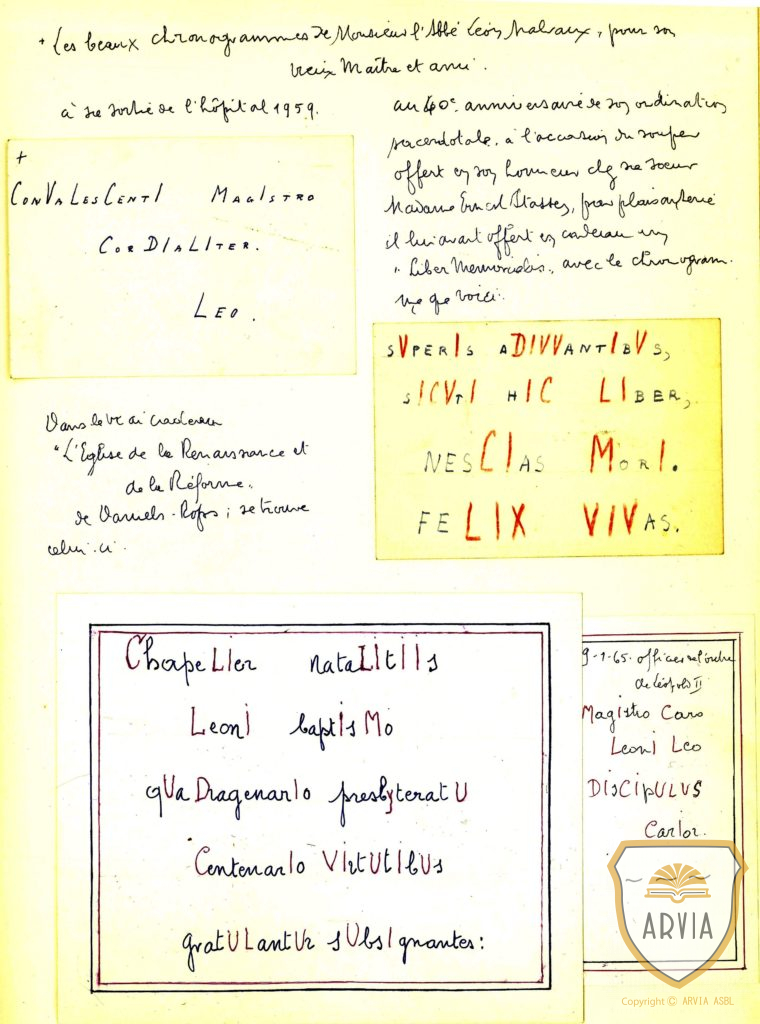 + Les beaux chronogrammes de Monsieur l'Abbé Léon Malvaux, pour son
vieux Maître et ami.
à sa sortie de l'hôpital 1959.
+
ConVaLesCentI MagIstro
CorDIaLIter.
Leo.
au 40e anniversaire de son ordination
sacerdotale. à l'occasion du souper
offert en son honneur chez sa soeur
Madame Ernest Stasses, pour plaisanterie
il lui avait offert en cadeau un
"Liber Memorialis", avec le chronogram-
me que voici:
sVperIs aDIVVantIbVs,
sICVtI hIC LIber,
nesCIas MorI.
feLIX VIVas.
Dans le vrai cadeau
"L'Eglise de la Renaissance et
de la Réforme"
de Daniels-Rops, se trouve
celui-ci.
ChapeLIer nataLItIIs
LeonI baptIsMo
qUaDragenarIo presbyteratU
CentenarIo VIrtUtIbUs
gratULantUr sUbsIgnantes:
9-1-65. officier de l'ordre
de Léopold II
MagIstro Caro
LeonI Leo
DIsCIpULUS
Carlor.
ARVIA
Copyright © ARVIA ASBL